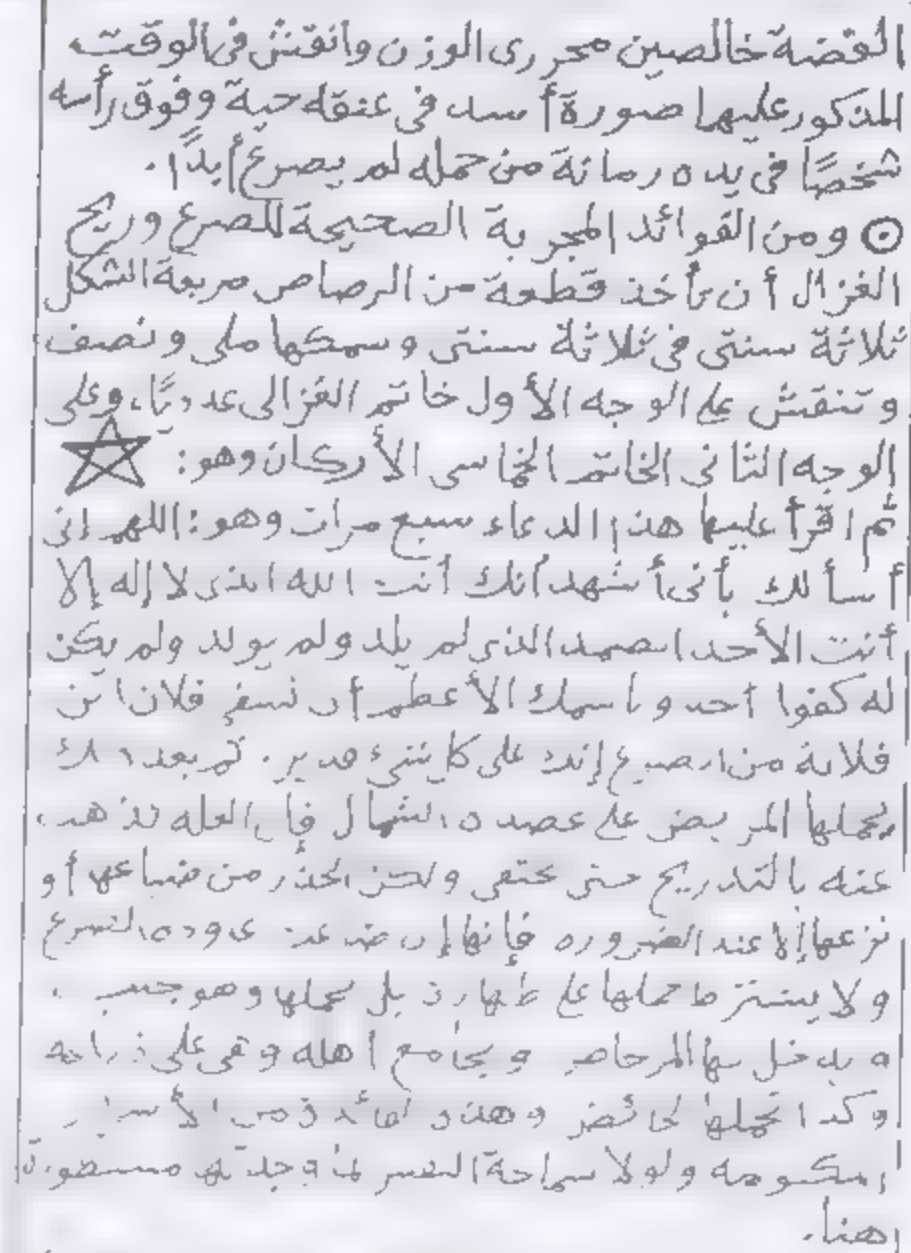 الفضة خالصين محررى الوزن وانقش فى الوقت
المذكور عليها صورة أسد فى عنقه حية وفوق رأسه
شخصًا فى يده رمانة من حمله لم يصرع أبدًا.
⊙ ومن الفوائد المجربة الصحيحة للصرع وريح
الغزال أن تأخذ قطعة من الرصاص مربعة الشكل
ثلاثة سنتى فى ثلاثة سنتى وسمكها ملى ونصف
وتنقش على الوجه الأول خاتم الغزالى عدديًا، وعلى
الوجه الثانى الخاتم الخماسى الأركان وهو:
ثم اقرأ عليها هذا الدعاء سبع مرات وهو: اللهم إنى
أسألك بأنى أشهد أنك أنت الله الذى لا إله إلا
أنت الأحد الصمد الذى لم يلد ولم يولد ولم يكن
له كفوا أحد وباسمك الأعظم أن تشفى فلان ابن
فلانة من الصرع إنك على كل شىء قدير. ثم بعد ذلك
يحملها المريض على عضده الشمال فإن العله تذهب
عنه بالتدريج حتى تختفى ولكن الحذر من ضياعها أو
نزعها إلا عند الضروره فإنها إن عودة الصرع
ولا يشترط حملها على طهارة بل يحملها وهو جنب
ويدخل بها المرحاض ويجامع أهله وهى على ذراعه
وكذا تحملها الحائض وهذه الفائدة من الأسرار
المكتومه ولولا سماحة النفس لما وجدتها مسطورة
هنا.